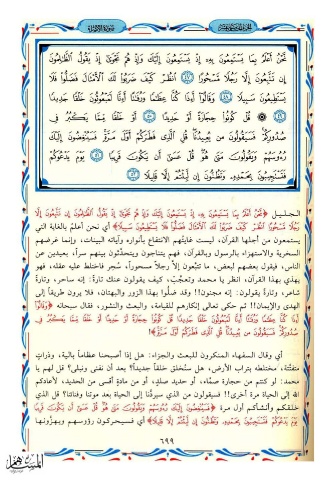 نَّحْنُ أَعْلَمُ بِمَا يَسْتَمِعُونَ بِهِۦٓ إِذْ يَسْتَمِعُونَ إِلَيْكَ وَإِذْ هُمْ نَجْوَىٰٓ إِذْ يَقُولُ ٱلظَّٰلِمُونَ
إِن تَتَّبِعُونَ إِلَّا رَجُلًا مَّسْحُورًا ٱنظُرْ كَيْفَ ضَرَبُوا۟ لَكَ ٱلْأَمْثَالَ فَضَلُّوا۟ فَلَا
يَسْتَطِيعُونَ سَبِيلًا وَقَالُوٓا۟ أَءِذَا كُنَّا عِظَٰمًا وَرُفَٰتًا أَءِنَّا لَمَبْعُوثُونَ خَلْقًا جَدِيدًا
قُلْ كُونُوا۟ حِجَارَةً أَوْ حَدِيدًا أَوْ خَلْقًا مِّمَّا يَكْبُرُ فِى
صُدُورِكُمْ فَسَيَقُولُونَ مَن يُعِيدُنَا قُلِ ٱلَّذِى فَطَرَكُمْ أَوَّلَ مَرَّةٍ فَسَيُنْغِضُونَ إِلَيْكَ
رُءُوسَهُمْ وَيَقُولُونَ مَتَىٰ هُوَ قُلْ عَسَىٰٓ أَن يَكُونَ قَرِيبًا يَوْمَ يَدْعُوكُمْ
فَتَسْتَجِيبُونَ بِحَمْدِهِۦ وَتَظُنُّونَ إِن لَّبِثْتُمْ إِلَّا قَلِيلًا
الجليل ﴿نَّحْنُ أَعْلَمُ بِمَا يَسْتَمِعُونَ بِهِۦٓ إِذْ يَسْتَمِعُونَ إِلَيْكَ وَإِذْ هُمْ نَجْوَىٰٓ إِذْ يَقُولُ ٱلظَّٰلِمُونَ إِن تَتَّبِعُونَ إِلَّا
رَجُلًا مَّسْحُورًا ٱنظُرْ كَيْفَ ضَرَبُوا۟ لَكَ ٱلْأَمْثَالَ فَضَلُّوا۟ فَلَا يَسْتَطِيعُونَ سَبِيلًا﴾ أي نحن أعلمُ بالغاية التي
يستمعون من أجلها القرآن، ليست غايتُهم الانتفاع بأنواره وآياته البينات، وإنما غرضهم
السخرية والاستهزاء بالرسول وبالقرآن، فهم يتناجون ويتحدَّثون بينهم سراً، بعيدين عن
الناس، فيقول بعضهم لبعض، ما تتبعون إلاَّ رجلاً مسحوراً، سُحِر فاختلط عليه عقله، فهو
يهذي بهذا القرآن، انظر يا محمد وتعجَّب، كيف يقولون عنك تارةً: إنه ساحر، وتارةً
شاعر، وتارةً يقولون: إنه مجنون!! وقد ضلُّوا بهذا الزور والبهتان، فلا يرون طريقاً إلى
الهدى والإيمان!! ثم حكى تعالى إنكارهم للقيامة، والبعث والنشور، فقال سبحانه ﴿وَقَالُوٓا۟
أَءِذَا كُنَّا عِظَٰمًا وَرُفَٰتًا أَءِنَّا لَمَبْعُوثُونَ خَلْقًا جَدِيدًا قُلْ كُونُوا۟ حِجَارَةً أَوْ حَدِيدًا أَوْ خَلْقًا مِّمَّا يَكْبُرُ فِى
صُدُورِكُمْ فَسَيَقُولُونَ مَن يُعِيدُنَا قُلِ ٱلَّذِى فَطَرَكُمْ أَوَّلَ مَرَّةٍ﴾؟
أي وقال السفهاء المنكرون للبعث والجزاء: هل إذا أصبحنا عظاماً بالية، وذراتٍ
متفتِّتة، مختلطة بتراب الأرض، هل سنُخلق خلقاً جديداً؟ بعد أن نفنى ونبلى؟ قل لهم يا
محمد: لو كنتم من حجارة صمَّاء، أو حديد صلدٍ، أو من مادةٍ أقسى من الحديد، لأعادكم
الله إلى الحياة مرة أخرى!! فسيقولون من الذي سيردُّنا إلى الحياة بعد موتنا وفنائنا؟ قل الذي
خلقكم وأنشأكم أول مرة ﴿فَسَيُنْغِضُونَ إِلَيْكَ رُءُوسَهُمْ وَيَقُولُونَ مَتَىٰ هُوَ قُلْ عَسَىٰٓ أَن يَكُونَ قَرِيبًا يَوْمَ
يَدْعُوكُمْ فَتَسْتَجِيبُونَ بِحَمْدِهِۦ وَتَظُنُّونَ إِن لَّبِثْتُمْ إِلَّا قَلِيلًا﴾ أي فسيحركون رؤوسهم ويهزُّونها
٦٩٩